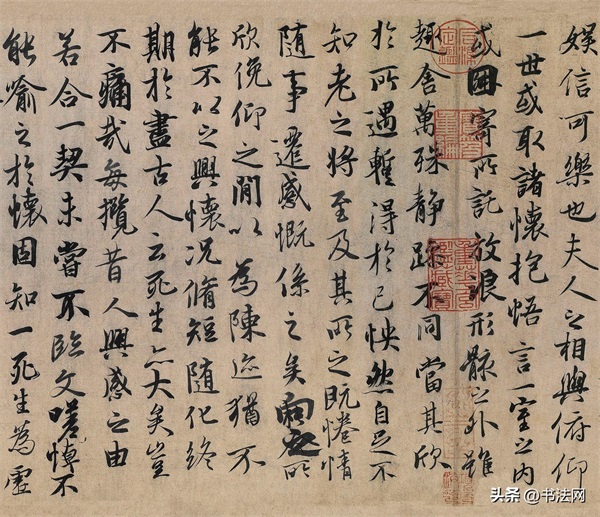 娛信可樂也夫人之相與俯仰
一世或取諸懷抱悟言一室之內
或因寄所託放浪形骸之外雖
趣舍萬殊靜躁不同當其欣
於所遇蹔得於己怏然自足不
知老之將至及其所之既惓情
隨事遷感慨係之矣向之所
欣俛仰之閒以為陳迹猶不
能不以之興懷况脩短隨化終
期於盡古人云死生亦大矣豈
不痛哉每攬昔人興感之由
若合一契未嘗不臨文嗟悼不
能喻之於懷固知一死生為虛
头条 @书法网